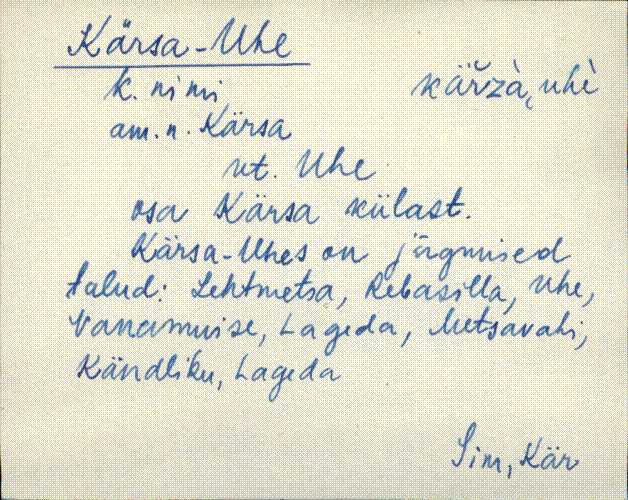 Kärsa-Uhe
k. nimi kär̆zà, uhè
am. n. Kärsa
vt. Uhe
osa Kärsa külast.
Kärsa-Uhes on järgmised
talud: Lehtmetsa, Rebasilla, Uhe,
Vanamuise, Lageda, Metsavahi,
Kändliku, Lageda
Sim, Kär